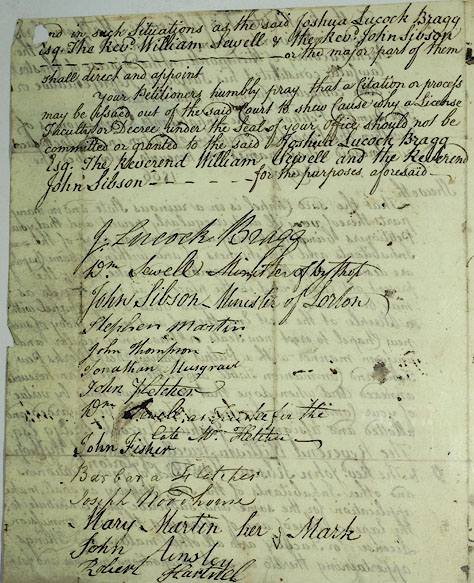 and in such Situations as the said Joshua Lucock Bragg
Esq. The Revd. William Sewell & the Revd. John Sibson
or the major part of them
shall direct and appoint
Your Petitioners humbly pray that a Citation or process
may be issued out of the said Court to shew Cause why a License
Faculty or Decree under the Seal of your Office should not be
committed or granted to the said Joshua Lucock Bragg
Esq. The Reverend William Sewell and the Reverend
John Sibson for the purposes aforesaid
J. Lucock Bragg
Wm Sewell Minister of
John Sibson Minister of Lorton
Stephen Martin
John Thompson
Jonathan Musgrave
John Fletcher
Wm Sewell for the
late Mr. Fletcher
John Fisher
Barbara Fletcher
Joseph
Mary Martin her Mark
John Ainsley
Robert